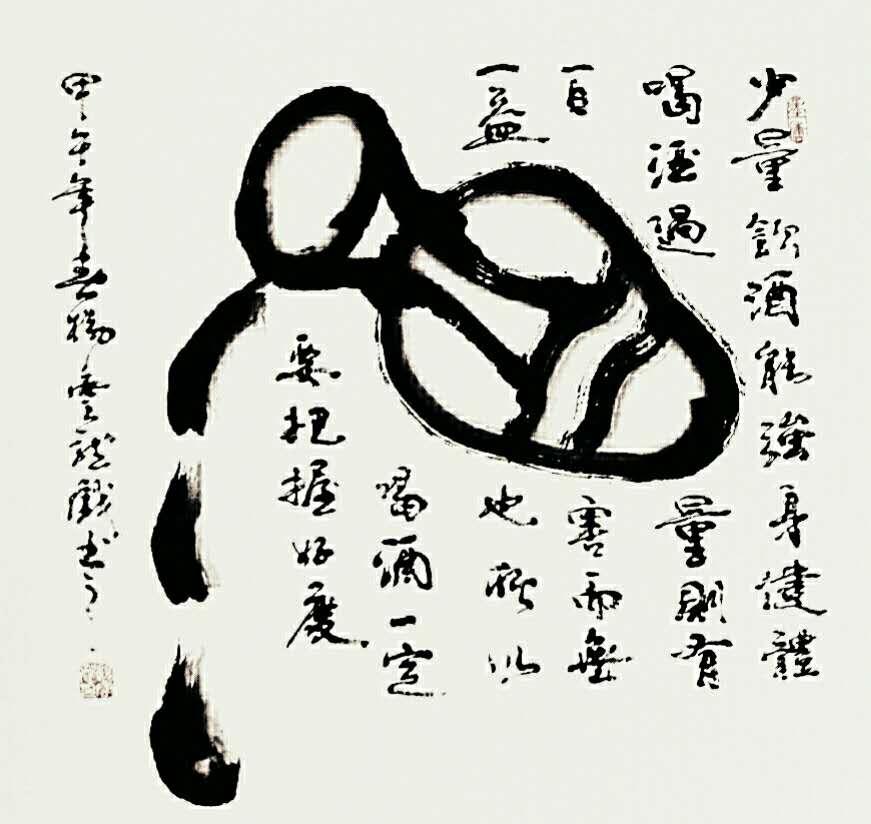 少量飲酒能強身健體
喝酒過量有
百害而無
一益也所以
喝酒一定
要把握好度
甲午年春楊雲龍戲書